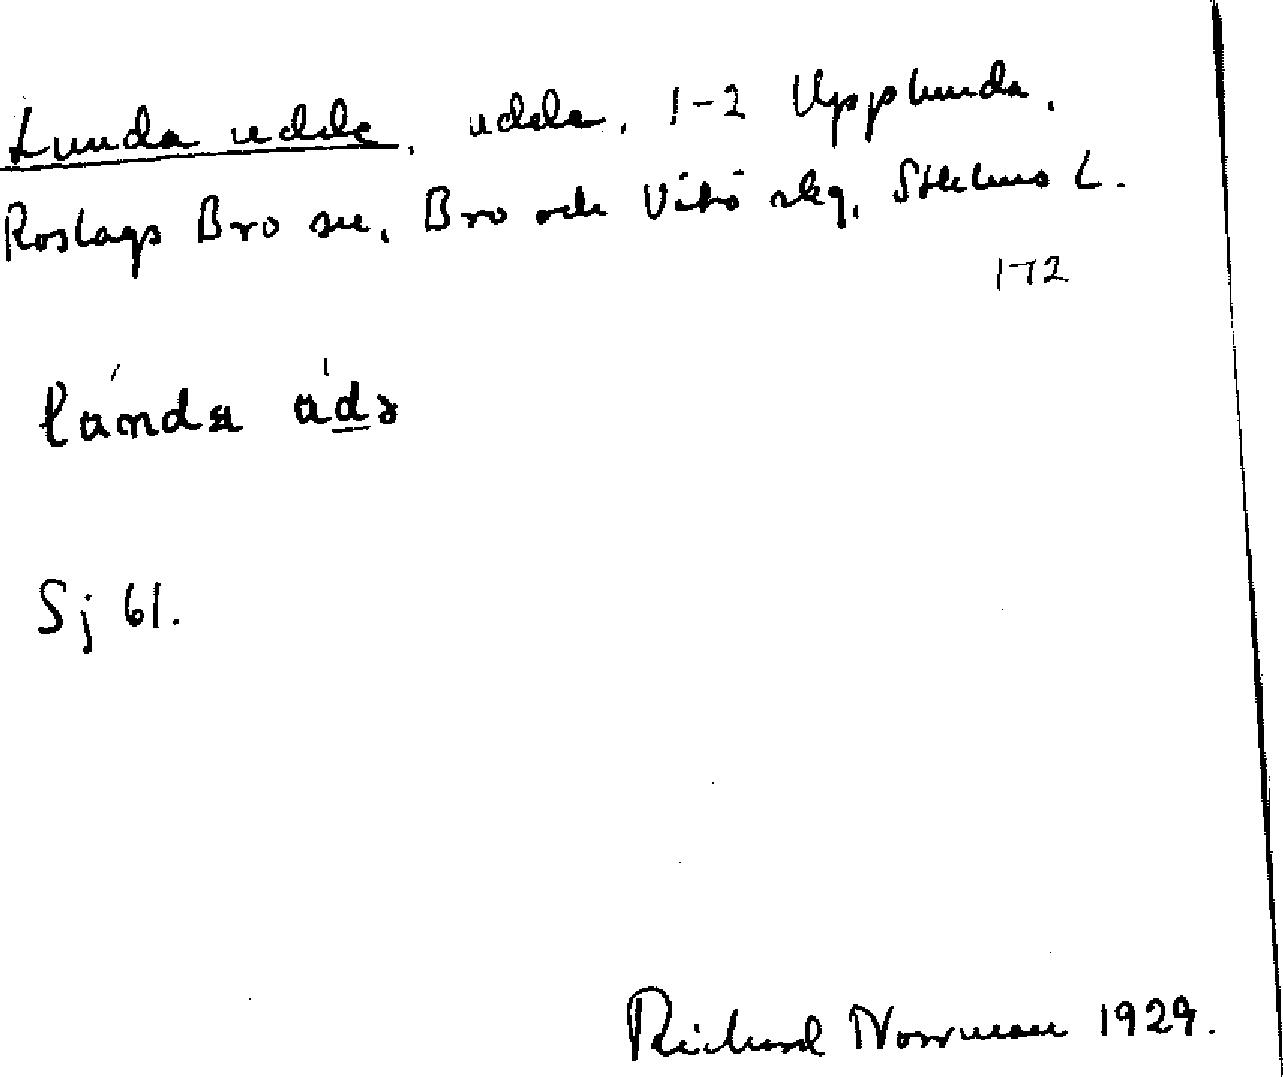 Lunda udde, udde, 1-2 Upplunda,
Roslags Bro sn, Bro och Vätö skg, Sthlms L.
172
Sj 61.
Richard Norrman 1929.